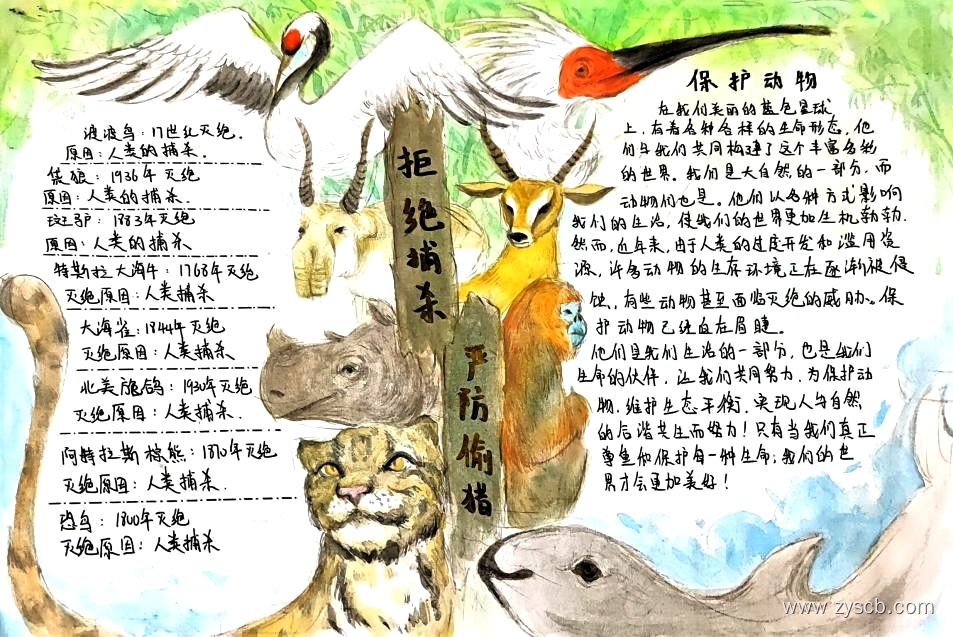 渡渡鸟：17世纪灭绝.
原因：人类的捕杀.
袋狼：1936年灭绝
原因：人类的捕杀
斑驴：1883年灭绝
原因：人类的捕杀
特斯拉大海牛：1768年灭绝
灭绝原因：人类捕杀
大海雀：1844年灭绝
灭绝原因：人类捕杀
北美旅鸽：1930年灭绝
灭绝原因：人类捕杀.
阿特拉斯棕熊：1870年灭绝
灭绝原因：人类捕杀.
恐鸟：1800年灭绝
灭绝原因：人类捕杀
拒绝捕杀
严防偷猎
保护动物
在我们美丽的蓝色星球
上，有着各种各样的生命形态，他
们与我们共同构建了这个丰富多彩
的世界。我们是大自然的一部分，而
动物们也是。他们以各种方式影响
我们的生活，使我们的世界更加生机勃勃.
然而，近年来，由于人类的过度开发和滥用资
源，许多动物的生存环境正在逐渐被侵
蚀，有些动物甚至面临灭绝的威胁。保
护动物已经迫在眉睫。
他们是我们生活的一部分，也是我们
生命的伙伴，让我们共同努力，为保护动
物，维护生态平衡，实现人与自然
的和谐共生而努力！只有当我们真正
尊重和保护每一种生命，我们的世
界才会更加美好！
www.zyscb.com